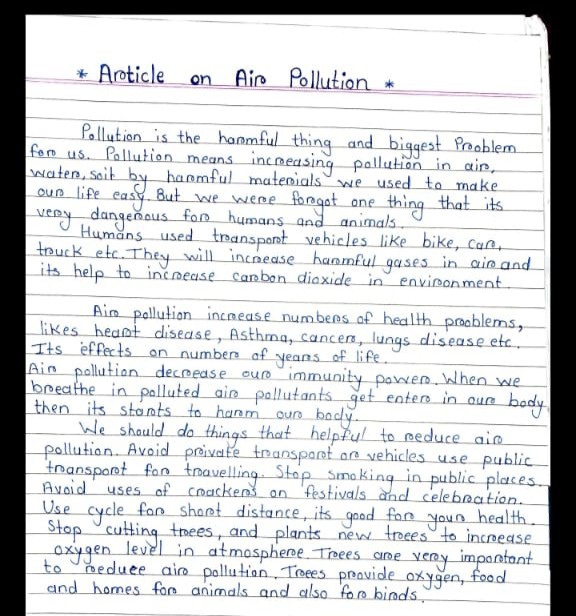 * Article on Air Pollution *
Pollution is the harmful thing and biggest Problem
for us. Pollution means increasing pollution in air,
water, soit by harmful materials we used to make
our life easy. But we were forgot one thing that its
very dangerous for humans and animals.
Humans used transport vehicles like bike, car,
truck etc. They will increase harmful gases in air and
its help to increase carbon dioxide in environment.
Air pollution increase numbers of health problems,
likes heart disease, Asthma, cancer, lungs disease etc.
Its effects on number of years of life.
Air pollution decrease our immunity power. When we
breathe in polluted air pollutants get enter in our body
then its starts to harm our body.
We should do things that helpful to reduce air
pollution. Avoid private transport or vehicles use public
transport for travelling. Stop smoking in public places.
Avoid uses of crackers on festivals and celebration.
Use cycle for short distance, its good for your health.
Stop cutting trees, and plants new trees to increase
oxygen level in atmosphere. Trees are very important
to reduce air pollution. Trees provide oxygen, food
and homes for animals and also for birds.